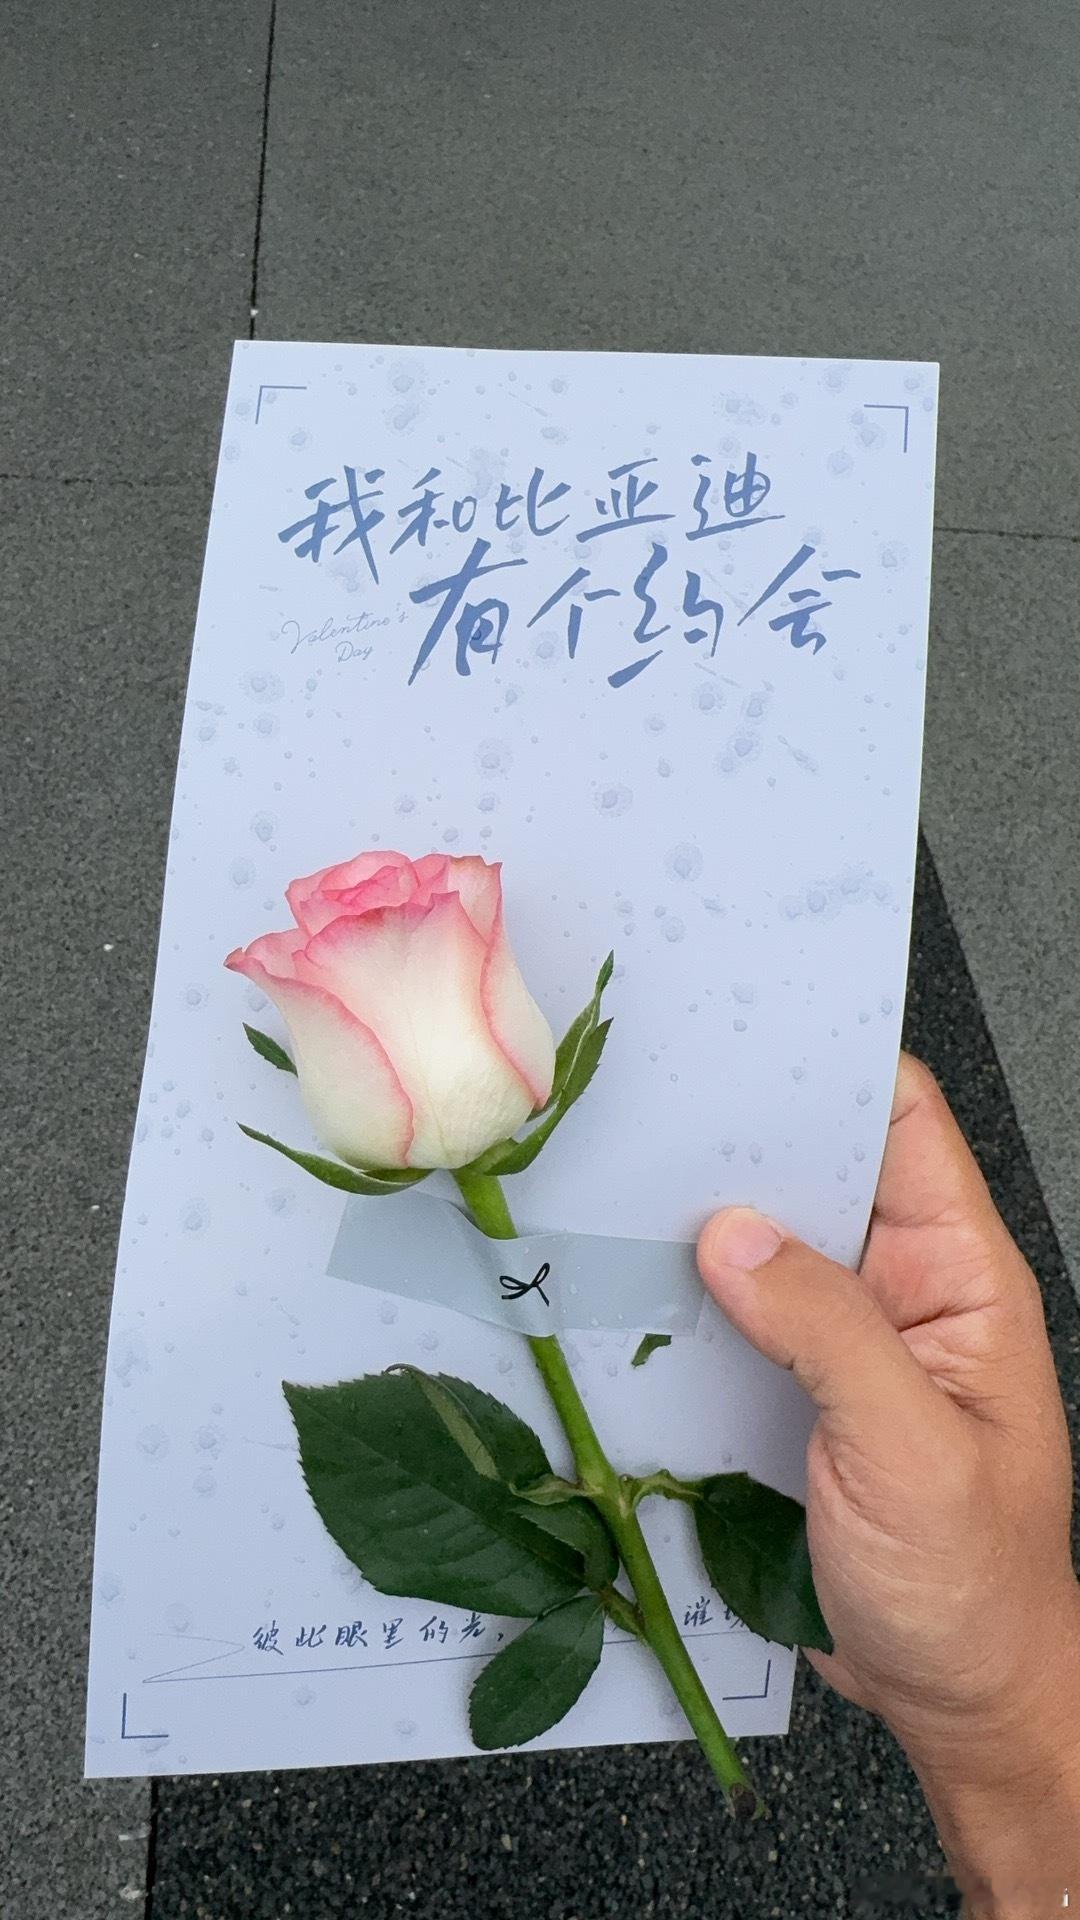 我和比亚迪
有个约会
Valentine's
Day
彼此眼里的光，